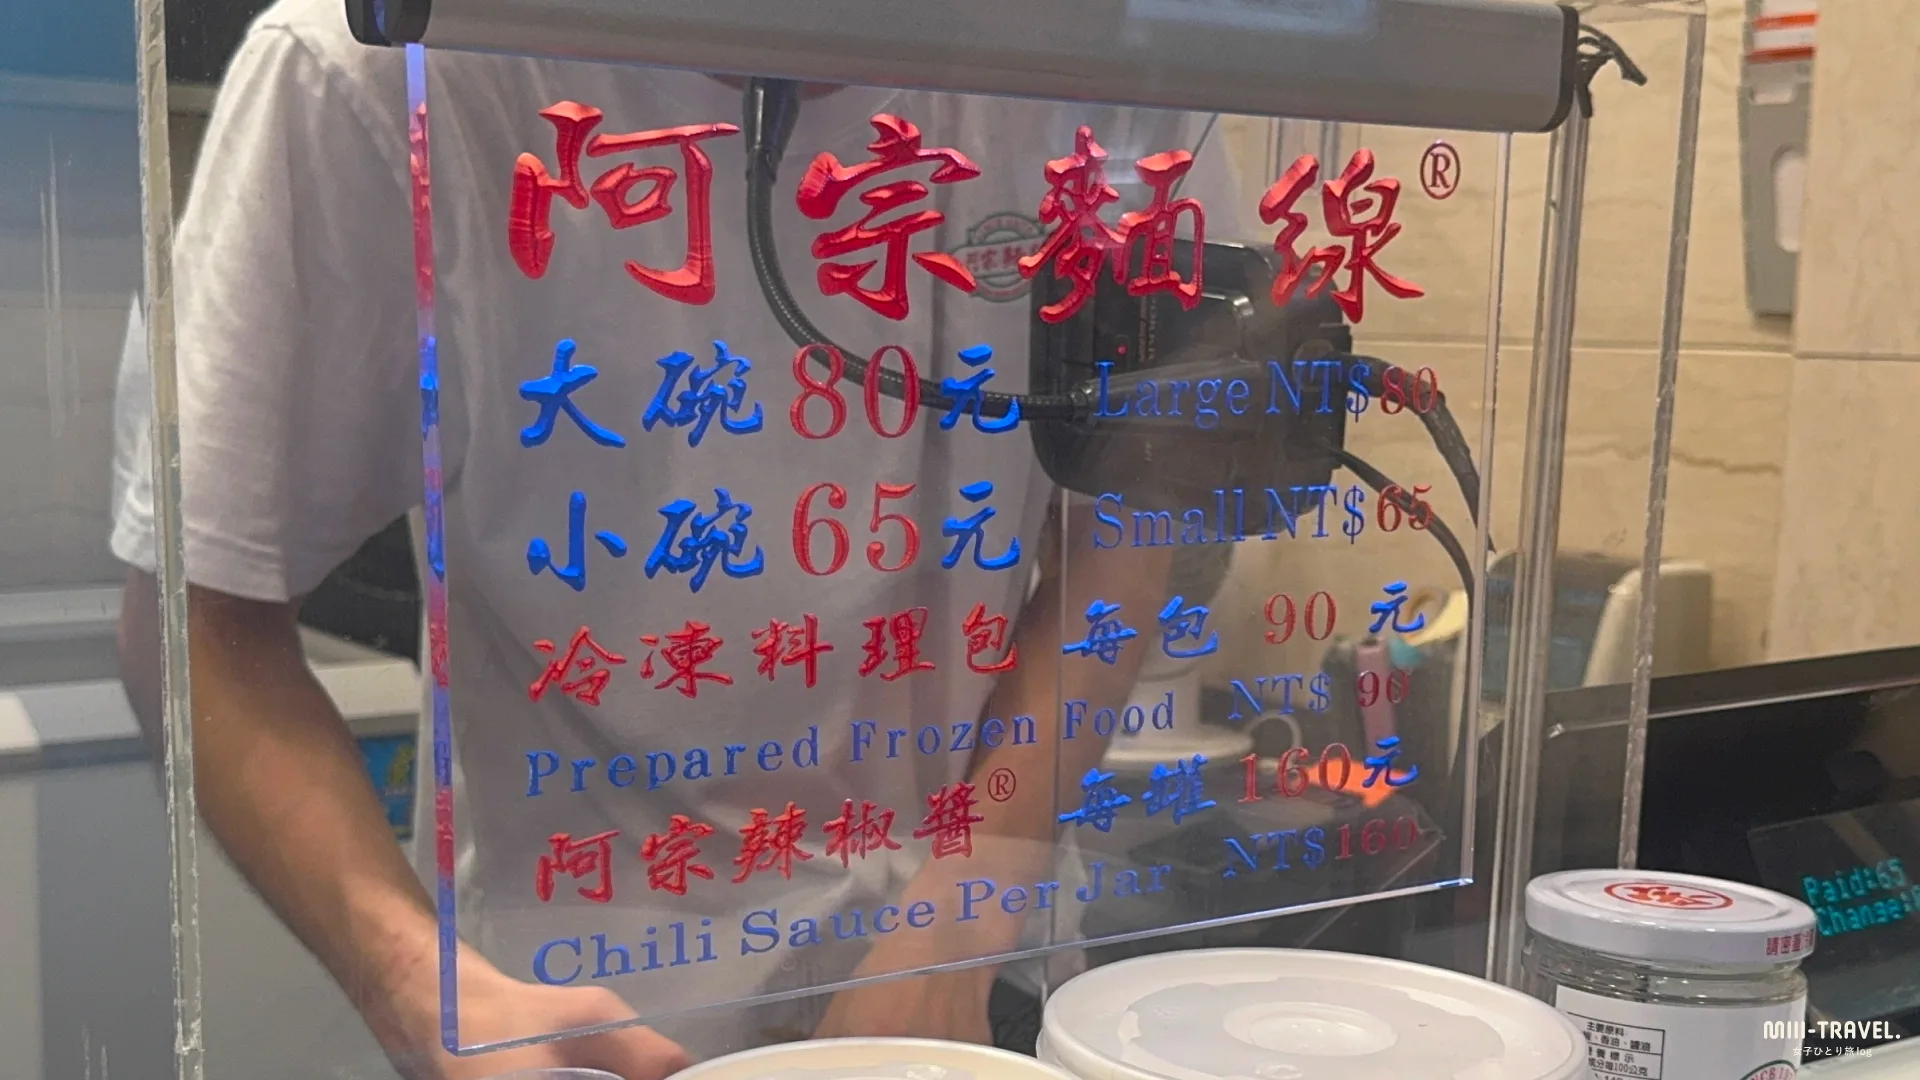 阿宗麵線®
大碗80元 Large NT$80
小碗65元 Small NT$65
冷凍料理包 每包 90 元
Prepared Frozen Food NT$ 90
阿宗辣椒醬® 每罐 160元
Chili Sauce Per Jar NT$160
Paid:65
Change:
主要原料
養標示
MIII-TRAVEL.
女子ひとり旅log